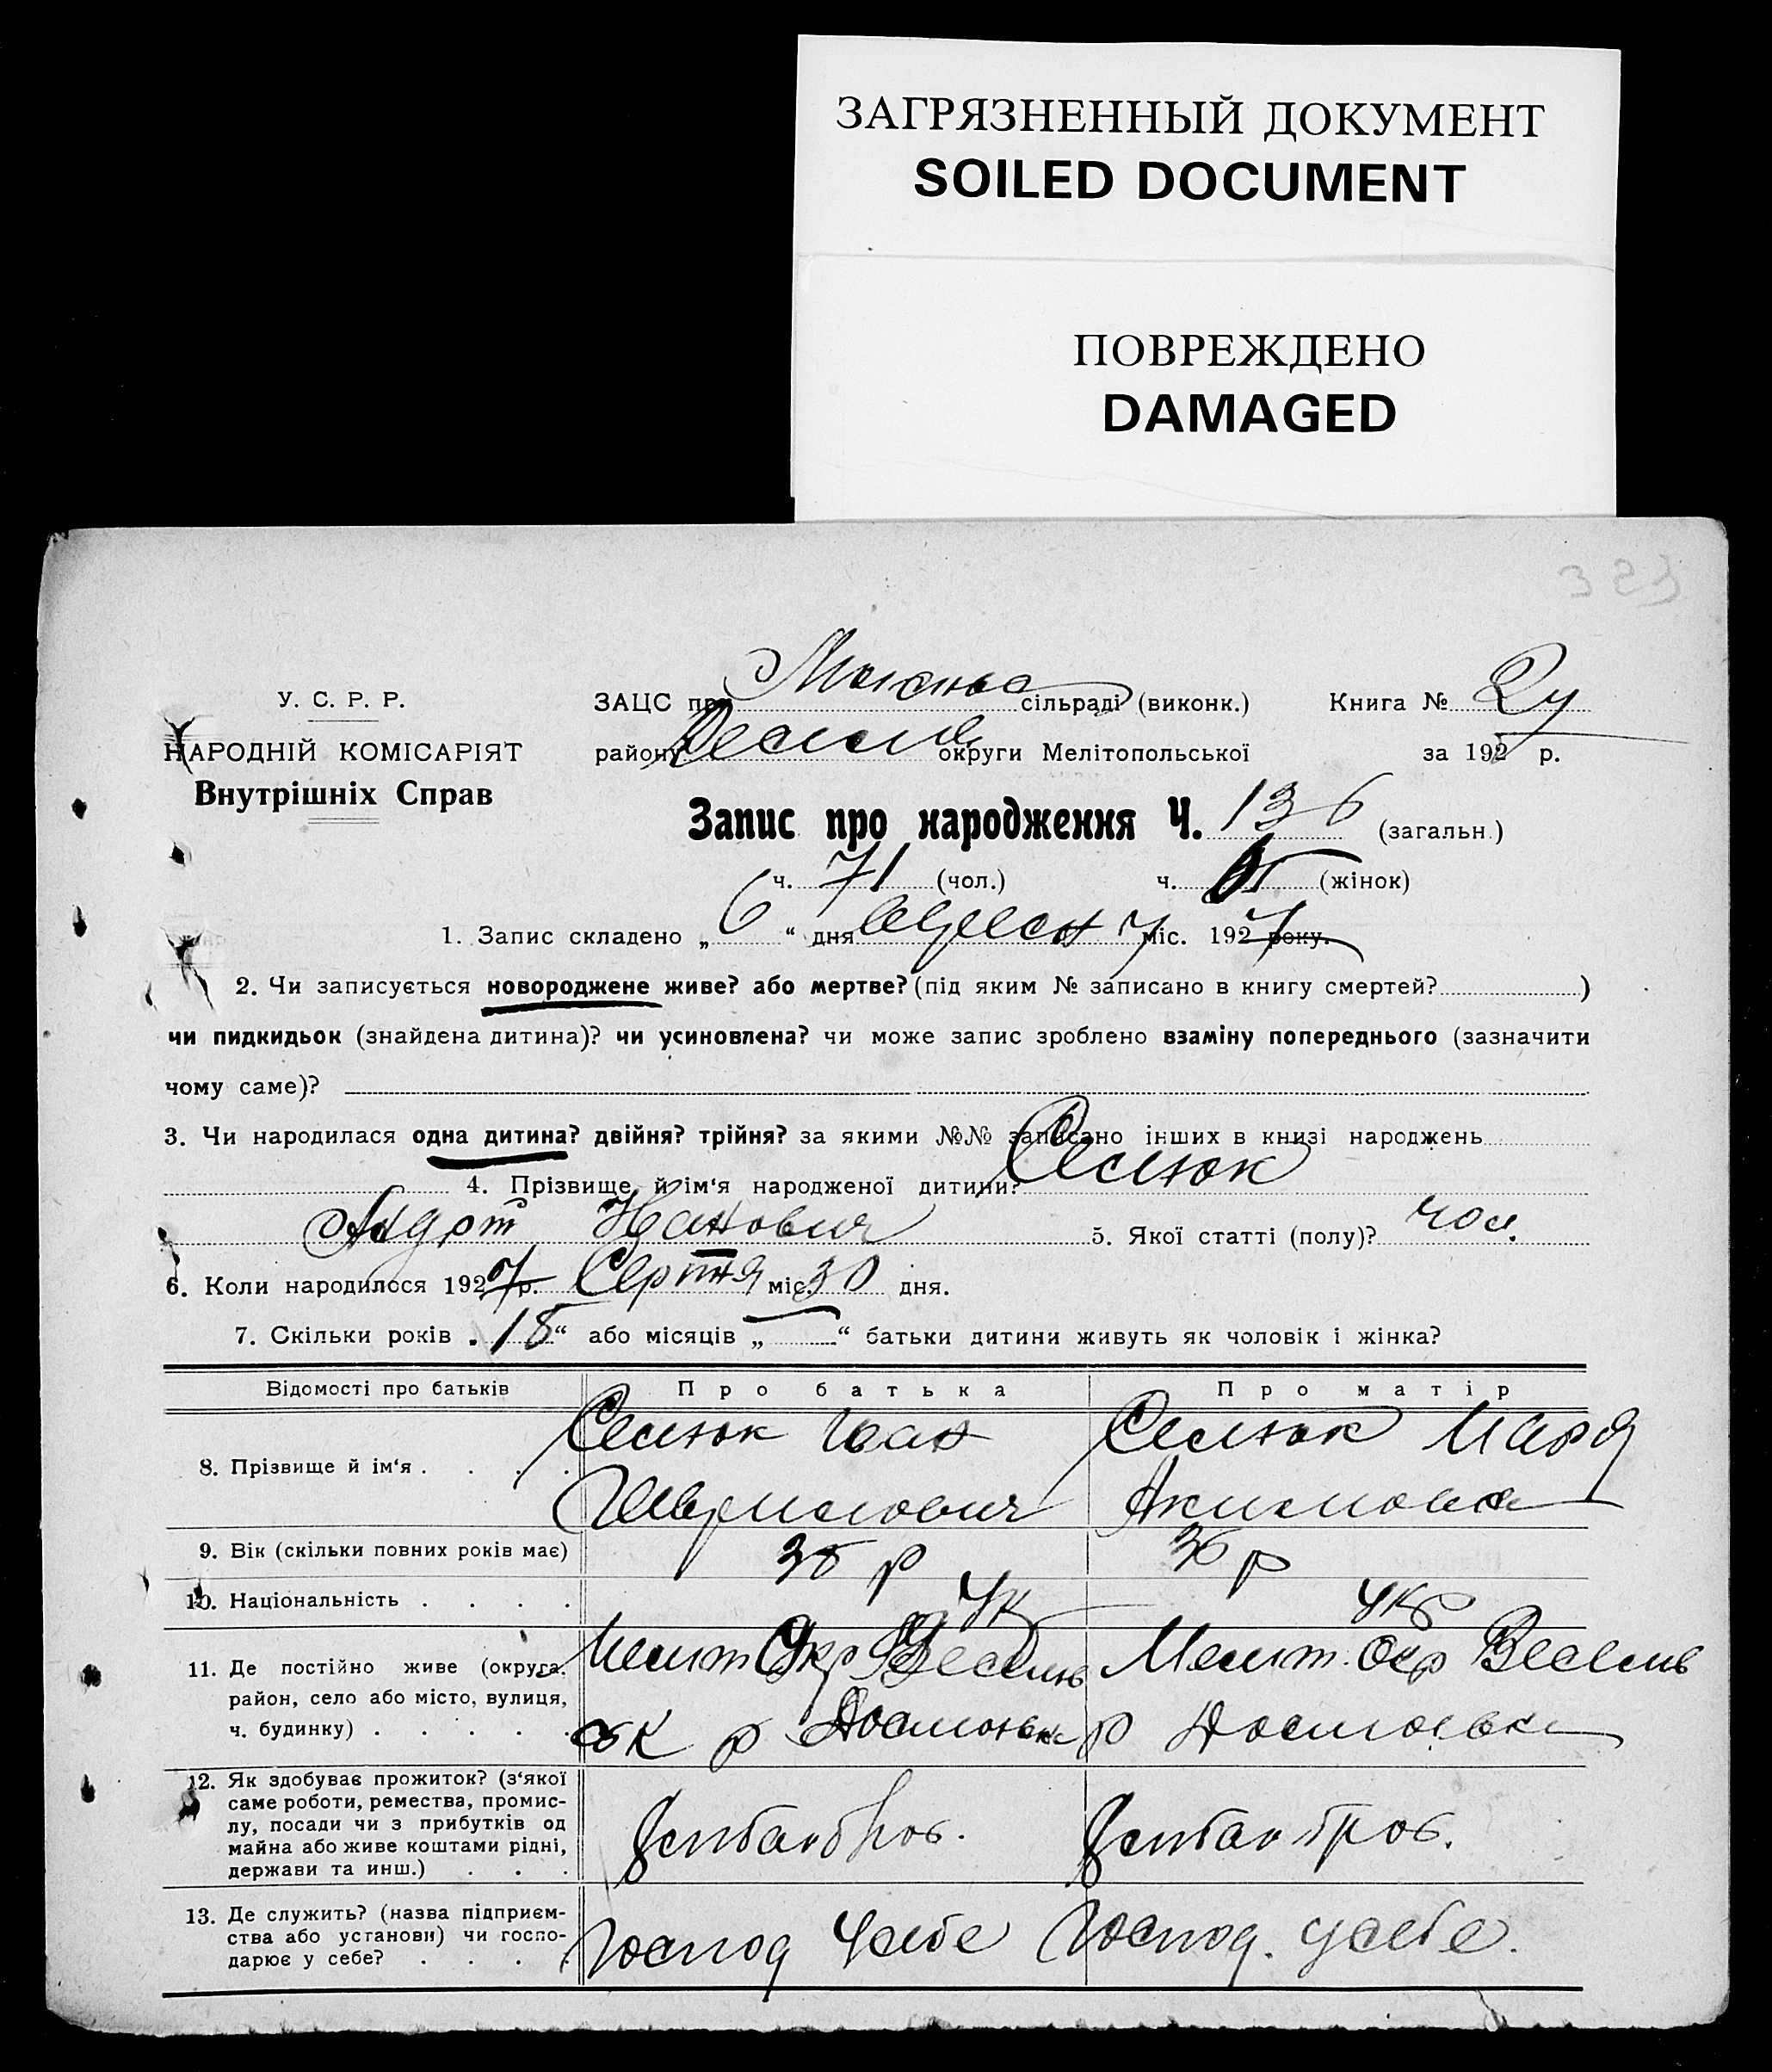 ЗАГРЯЗНЕННЫЙ ДОКУМЕНТ
SOILED DOCUMENT
ПОВРЕЖДЕНО
DAMAGED
У. С. Р. Р.
НАРОДНІЙ КОМІСАРІЯТ
Внутрішніх Справ
ЗАЦС при сільраді (виконк.) Книга №
району округи Мелітопольської за 192 р.
Запис про народження Ч. 136 (загальн.)
ч. 71 (чол.) ч. (жінок)
1. Запис складено „ 6 “ дня міс. 1927 року.
2. Чи записується новороджене живе? або мертве? (під яким № записано в книгу смертей? )
чи пидкидьок (знайдена дитина)? чи усиновлена? чи може запис зроблено взаміну попереднього (зазначити
чому саме)?
3. Чи народилася одна дитина? двійня? трійня? за якими №№ записано інших в книзі народжень
4. Прізвище й ім‘я народженої дитини? Селюк
Іванович 5. Якої статті (полу)? чол.
6. Коли народилося 1927 р. Серпня міс. 30 дня.
7. Скільки років „ 18 “ або місяців „ — “ батьки дитини живуть як чоловік і жінка?
Відомості про батьків Про батька Про матір
8. Прізвище й ім‘я . . . . Селюк Іван Селюк Мария
Акимовна
9. Вік (скільки повних років має) р 36 р
10. Національність . . . . Ук Укр
11. Де постійно живе (округа, Мелит Окр Мелит. Окр Веселив
район, село або місто, вулиця,
ч. будинку) . . . . . р р
12. Як здобуває прожиток? (з‘якої
саме роботи, ремества, промис-
лу, посади чи з прибутків од
майна або живе коштами рідні,
держави та инш.) . . .
хлибороб. хлибороб.
13. Де служить? (назва підприєм-
ства або установи) чи госпо-
дарює у себе? . . . .
Господ у себе Господ. у себе.